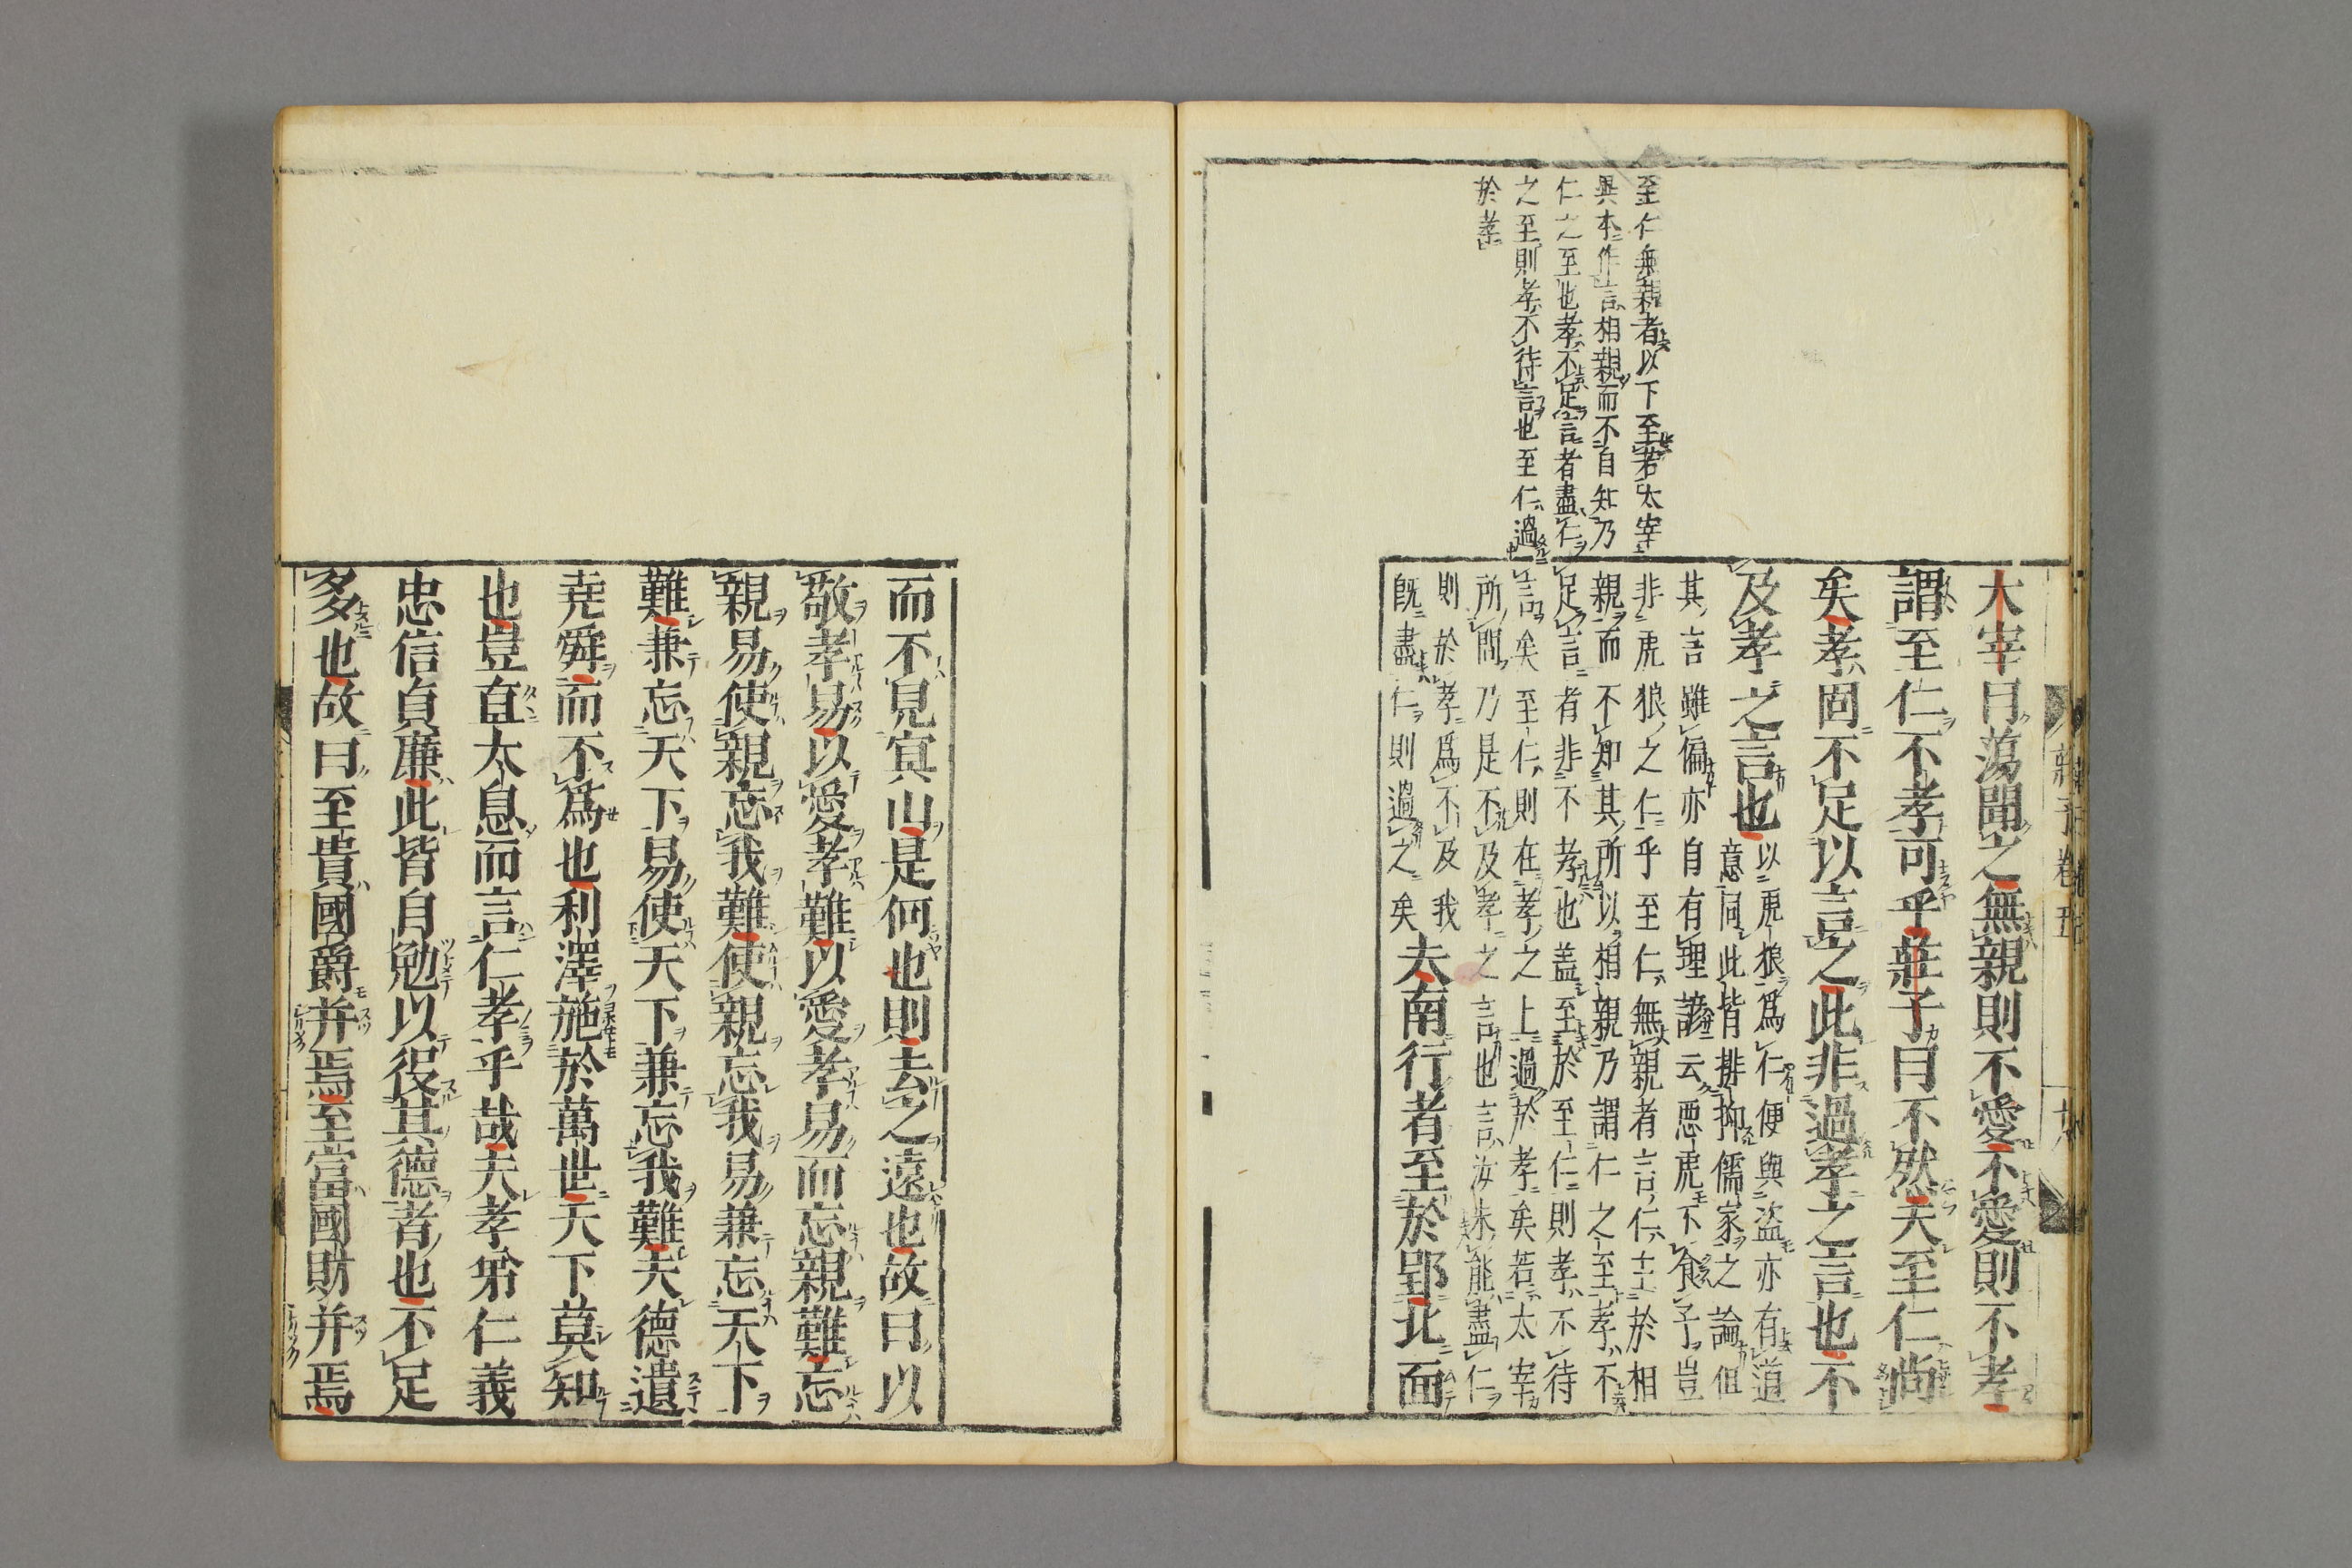 大宰曰蕩聞之無親則不愛不愛則不孝
謂至仁不孝可乎莊子曰不然夫至仁尚
矣孝固不足以言之此非過孝之言也不
及孝之言也
以虎狼爲仁便與盜亦有道
意同此皆排抑儒家之論但
其言雖偏亦自有理諺云惡虎不食子豈
非虎狼之仁乎至仁無親者言仁主於相
親而不知其所以相親乃謂仁之至孝不
足言者非不孝也蓋至於至仁則孝不待
言矣至仁則在孝之上過於孝矣若太宰
所問乃是不及孝之言也言汝未能盡仁
則於孝爲不及我
既盡仁則過之矣
夫南行者至於郢北面
至仁無親者以下至若太宰
異本作言相親而不自知乃
仁之至也孝不足言者盡仁
之至則孝不待言也至仁過
於孝
而不見冥山是何也則去之遠也故曰以
敬孝易以愛孝難以愛孝易而忘親難忘
親易使親忘我難使親忘我易兼忘天下
難兼忘天下易使天下兼忘我難夫德遺
堯舜而不爲也利澤施於萬世天下莫知
也豈直太息而言仁孝乎哉夫孝弟仁義
忠信貞廉此皆自勉以役其德者也不足
多也故曰至貴國爵并焉至富國財并焉